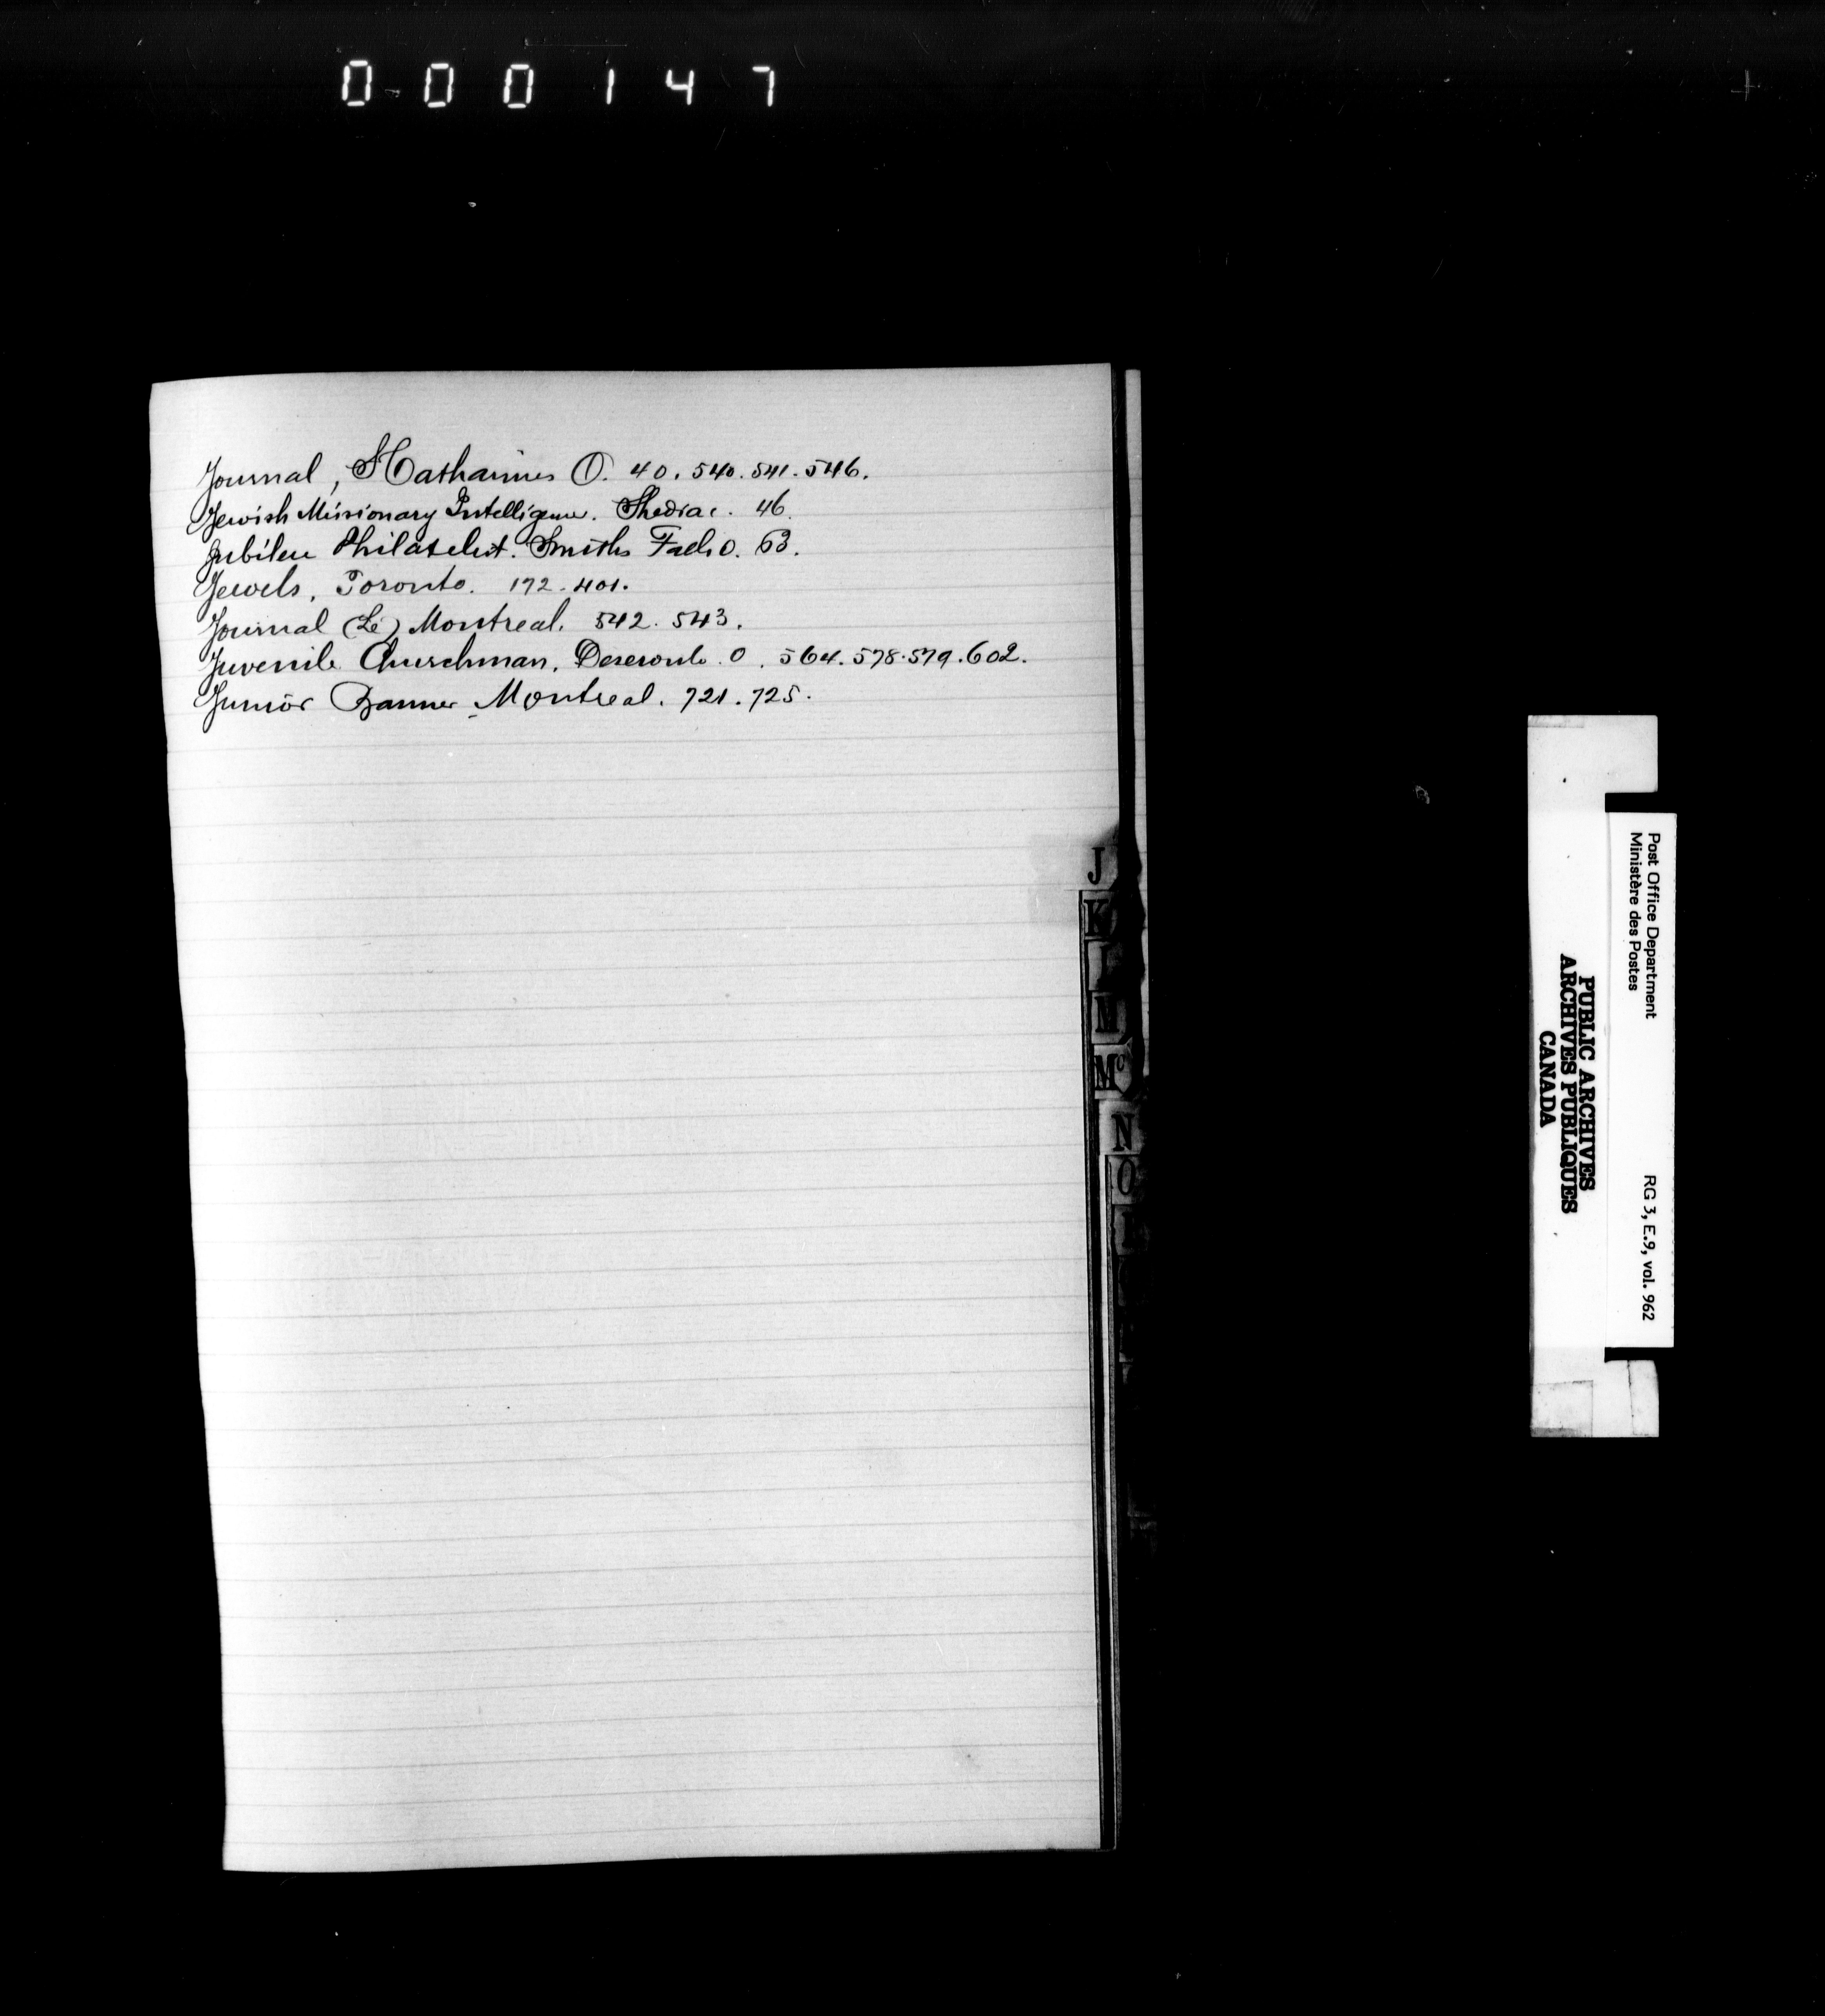 000147
Journal, St Catharines O. 40. 540. 541. 546.
Jewish Missionary Intelligence. Shediac. 46.
Jubilee Philatelist. Smiths Falls O. 63.
Jewels, Toronto. 172. 401.
Journal (Le) Montreal. 542. 543.
Juvenile Churchman, Deseronto. O. 564. 578. 579. 602.
Junior Banner Montreal. 721. 725.
J
K
L
M
Mc
N
O
Post Office Department
Ministère des Postes
RG 3, E.9, vol. 962
PUBLIC ARCHIVES
ARCHIVES PUBLIQUES
CANADA